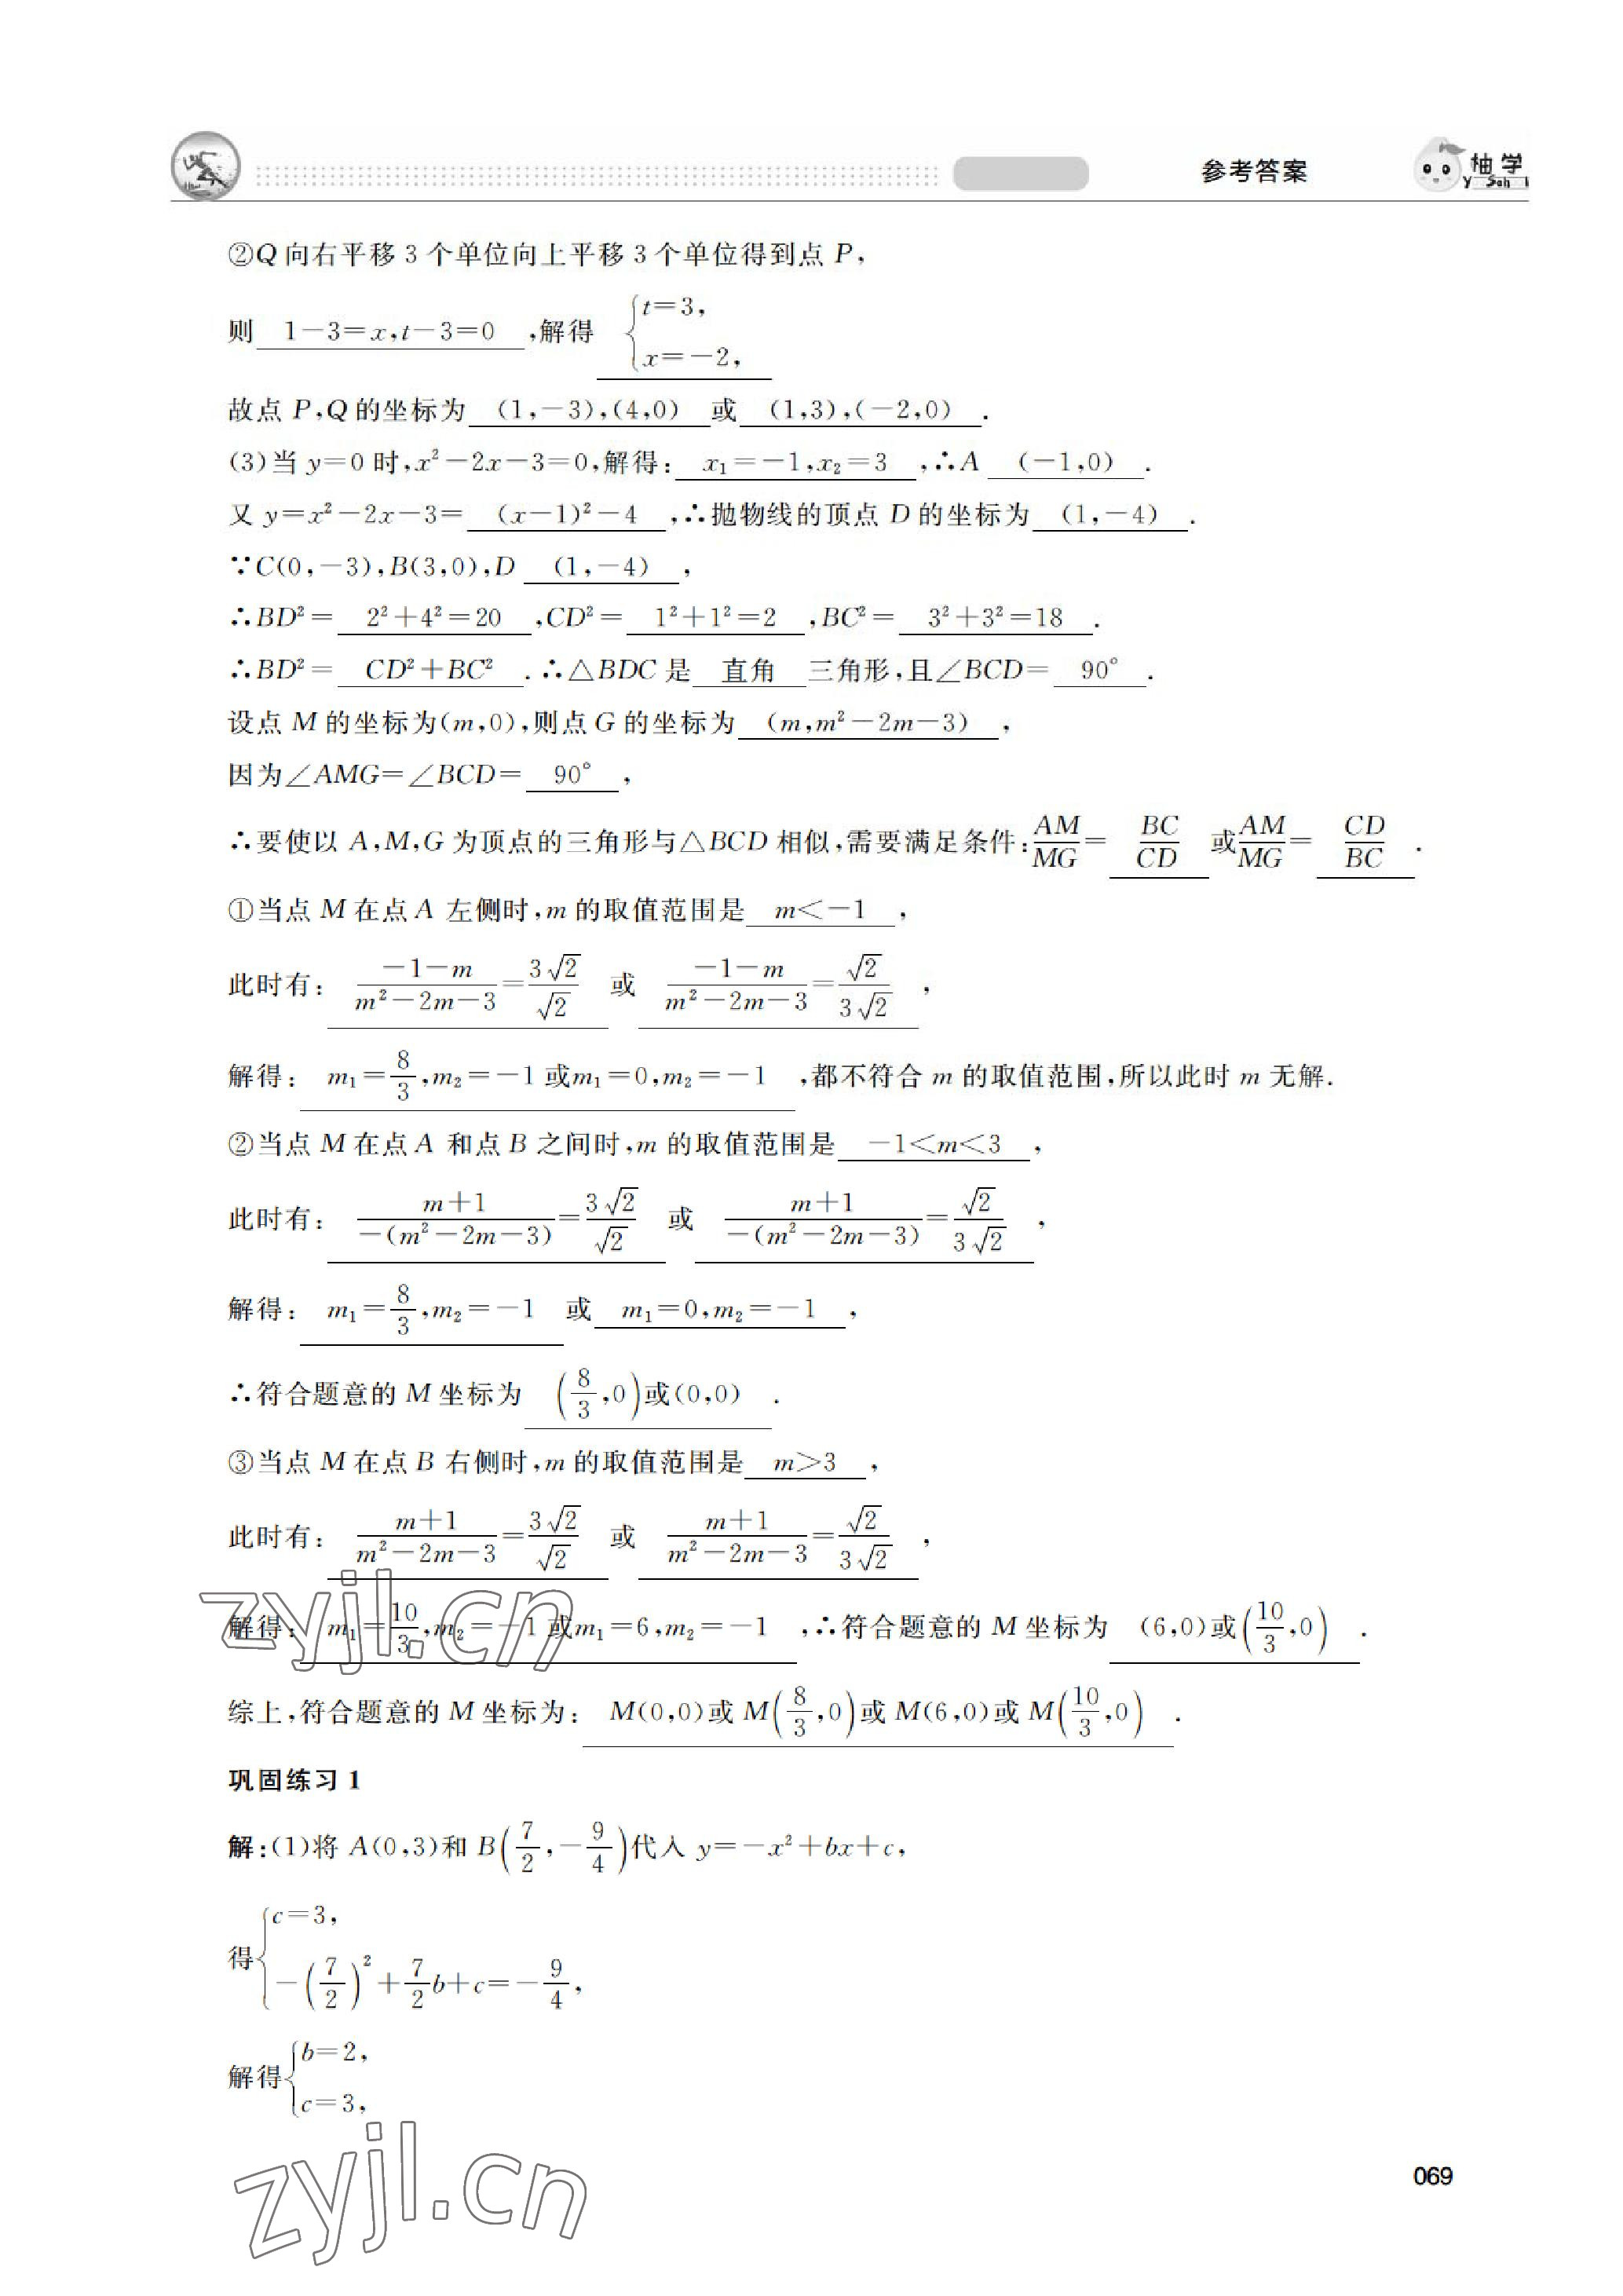 参考答案
柚学
②Q向右平移3个单位向上平移3个单位得到点P,
则 1-3=x,t-3=0 ,解得 {t=3, x=-2,
故点P,Q的坐标为 (1,-3),(4,0) 或 (1,3),(-2,0) .
(3)当y=0时,x²-2x-3=0,解得: x₁=-1,x₂=3 ,∴A (-1,0) .
又y=x²-2x-3= (x-1)²-4 ,∴抛物线的顶点D的坐标为 (1,-4) .
∵C(0,-3),B(3,0),D (1,-4) ,
∴BD²= 2²+4²=20 ,CD²= 1²+1²=2 ,BC²= 3²+3²=18 .
∴BD²= CD²+BC² .∴△BDC是 直角 三角形,且∠BCD= 90° .
设点M的坐标为(m,0),则点G的坐标为 (m,m²-2m-3) ,
因为∠AMG=∠BCD= 90° ,
∴要使以A,M,G为顶点的三角形与△BCD相似,需要满足条件:AM/MG= BC/CD 或AM/MG= CD/BC .
①当点M在点A左侧时,m的取值范围是 m<-1 ,
此时有: (-1-m)/(m²-2m-3)=3√2/√2 或 (-1-m)/(m²-2m-3)=√2/3√2 ,
解得: m₁=8/3,m₂=-1或m₁=0,m₂=-1 ,都不符合m的取值范围,所以此时m无解.
②当点M在点A和点B之间时,m的取值范围是 -1<m<3 ,
此时有: (m+1)/-(m²-2m-3)=3√2/√2 或 (m+1)/-(m²-2m-3)=√2/3√2 ,
解得: m₁=8/3,m₂=-1 或 m₁=0,m₂=-1 ,
∴符合题意的M坐标为 (8/3,0)或(0,0) .
③当点M在点B右侧时,m的取值范围是 m>3 ,
此时有: (m+1)/(m²-2m-3)=3√2/√2 或 (m+1)/(m²-2m-3)=√2/3√2 ,
解得: m₁=10/3,m₂=-1或m₁=6,m₂=-1 ,∴符合题意的M坐标为 (6,0)或(10/3,0) .
综上,符合题意的M坐标为: M(0,0)或M(8/3,0)或M(6,0)或M(10/3,0) .
巩固练习1
解:(1)将A(0,3)和B(7/2,-9/4)代入y=-x²+bx+c,
得{c=3, -(7/2)²+7/2b+c=-9/4,
解得{b=2, c=3,
069
zyjl.cn
zyjl.cn